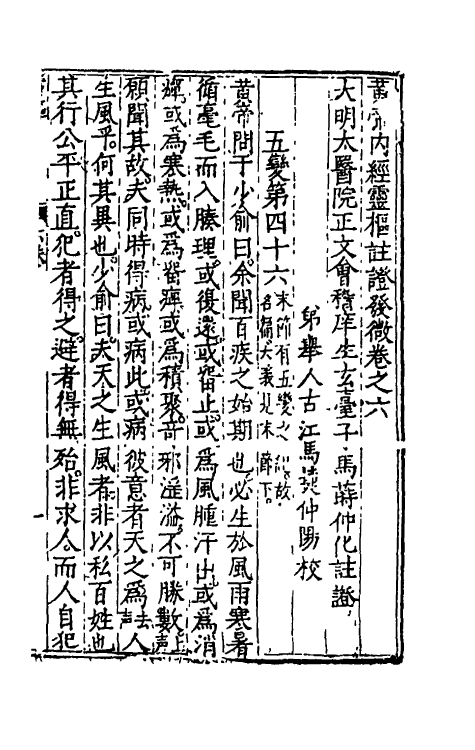 黃帝內經靈樞註證發微卷之六
大明太醫院正文會稽庠生玄臺子馬蒔仲化註證
弟舉人古江馬蓂仲陽校
五變第四十六末節有五變之紀故名篇大義見末節下
黃帝問于少俞曰余聞百疾之始期也必生於風雨寒暑
循毫毛而入腠理或復還或留止或為風腫汗出或為消
癉或為寒熱或為留痺或為積聚奇邪淫溢不可勝數上聲
願聞其故夫同時得病或病此或病彼意者天之為去聲人
生風乎何其異也少俞曰夫天之生風者非以私百姓也
其行公平正直犯者得之避者得無殆非求人而人自犯